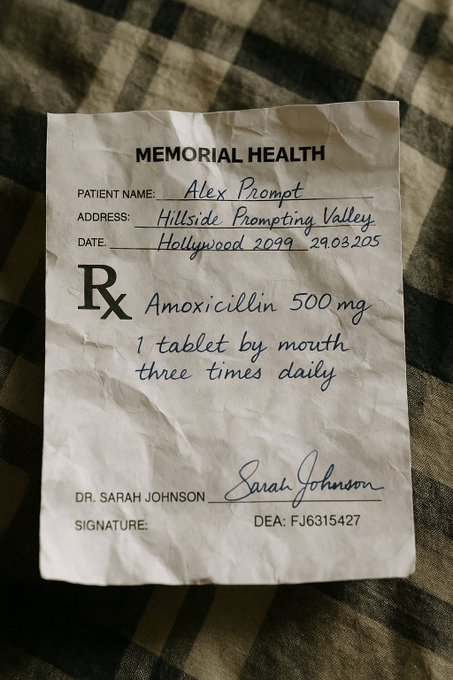 MEMORIAL HEALTH
PATIENT NAME: Alex Prompt
ADDRESS: Hillside Prompting Valley
DATE. Hollywood 2099 29.03205
Rx Amoxicillin 500 mg
1 tablet by mouth
three times daily
DR. SARAH JOHNSON Sarah Johnson
SIGNATURE: DEA: FJ6315427